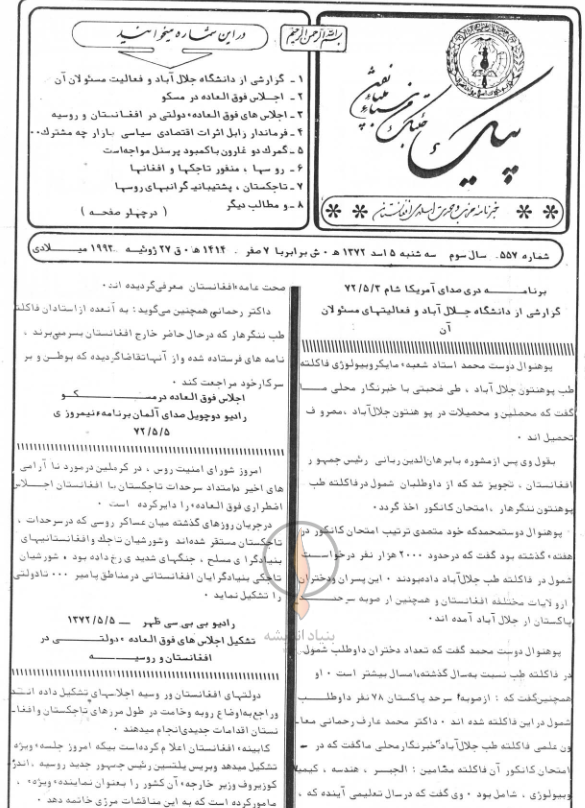 بسم الله الرحمن الرحیم
در این شماره میخوانید
۱ - گزارشی از دانشگاه جلال آباد و فعالیت مسئولان آن
۲ - اجلاس فوق العاده در مسکو
۳ - اجلاس های فوق العاده دولتی در افغانستان و روسیه
۴ - فرماندار زابل اثرات اقتصادی سیاسی بازار چه مشترک۰۰
۵ - گمرک دو غارون باکمبود پرسنل مواجه‌است
۶ - روسها ، منفور تاجکها و افغانها
۷ - تاجکستان ، پشتبانیه گرانبهای روسها
۸ - و مطالب دیگر
( درچهلو صفحه )
پیک
خبرنامه حزب وحدت اسلامی افغانستان
شماره ۵۵۷ . سال سوم سه شنبه ۵ اسد ۱۳۷۲ ه ۰ ش برابربا ۷ صفر ۱۴۱۴ ه۰ ق ۲۷ ژوئیه ۱۹۹۳ میلادی
برنامه دری صدای آمریکا شام ۷۲/۵/۲
گزارشی از دانشگاه جلال آباد و فعالیتهای مسئولان
آن
پوهنوال دوست محمد استاد شعبه مایکروبیولوژی فاکلته
طب پوهنتون جلال آباد ، طی صحبتی با خبرنگار محلی ما
گفت که محصلین و محصلات در پو هنتون جلال‌آباد ،مصرو ف
تحصیل اند ۰
بقول وی پس ازمشوره بابرهان‌الدین ربانی رئیس جمهو ر
افغانستان ، تجویز شد که از داوطلبان شمول درفاکلته طب
پوهنتون ننگرهار ،امتحان کانکور اخذ گردد۰
پوهنوال دوستمحمدکه خود متصدی ترتیب امتحان کانکور در
هفته گذشته بود گفت که درحدود ۲۰۰۰ هزار نفر درخواست
شمول در فاکلته طب جلال‌آباد داده‌بودند ۰ این پسران ودختران
ازولایات مختلفه افغانستان و همچنین از صوبه سرحد
پاکستان از جلال آباد آمده اند۰
پوهنوال دوست محمد گفت که تعداد دختران داوطلب شمول
در فاکلته طب نسبت به‌سال گذشته،امسال بیشتر است ۰ او
همچنین‌گفت که : ازصوبه سرحد پاکستان ۷۸ نفر داوطلب
شمول دراین فاکلته شده اند ۰ داکتر محمد عارف رحمانی معا-
ون علمی فاکلته طب جلال‌آباد خبرنگارمحلی ماگفت که در -
امتحان کانکور آن فاکلته مضامین : الجبر ، هندسه ، کیمیا
وبیولوژی ، شامل بود ۰ وی گفت که درسال تعلیمی آینده که ،
صحت عامه افغانستان معرفی‌گردیده اند۰
داکتر رحمانی همچنین می‌گوید: به آنعده ازاستادان فاکلته
طب ننگرهار که درحال حاضر خارج افغانستان بسرمی‌برند ،
نامه های فرستاده شده واز آنهاتقاضاگردیده که بوطن و بر
سرکارخود مراجعت کند ۰
اجلاس فوق العاده درمسکو
رادیو دوچویل صدای آلمان برنامه نیمروز ی
۷۲/۵/۵
امروز شورای امنیت روس ، در کرملین درمورد نا آرامی
های اخیر درامتداد سرحدات تاجکستان با افغانستان اجلاس
اضطراری فوق العاده را دایرکرده است ۰
درجریان روزهای گذشته میان عساکر روسی که درسرحدات ،
تاجکستان مستقر شده‌اند وشورشیان تاجک وافغانستانیهای
بنیادگرا ی مسلح ، جنگهای شدید ی رخ داده بود ۰ شورشیان
تاجکی بنیادگرایان افغانستانی درمناطق پامیر ۰۰۰ تادولتی
را تشکیل نماید ۰
رادیو بی بی سی ظهر — ۱۳۷۲/۵/۵
تشکیل اجلاس های فوق العاده دولتی در
افغانستان و روسیه
دولتهای افغانستان ور وسیه اجلاسهای تشکیل داده انتد
وراجع به‌اوضاع روبه وخامت در طول مررهای تاجکستان وافغا-
نستان اقدامات جدیدی‌انجام میدهند ۰
کابینه افغانستان اعلام کرده‌است بیکه امروز جلسه ویژه
تشکیل میدهد وبریس یلتسین رئیس جمهور جدید روسیه ، اندر
کوزیروف وزیر خارجه آن کشور را بعنوان نماینده ویژه ،
مامورکرده است که به این مناقشات مرزی خاتمه دهد ۰
بنیاد اندیشه